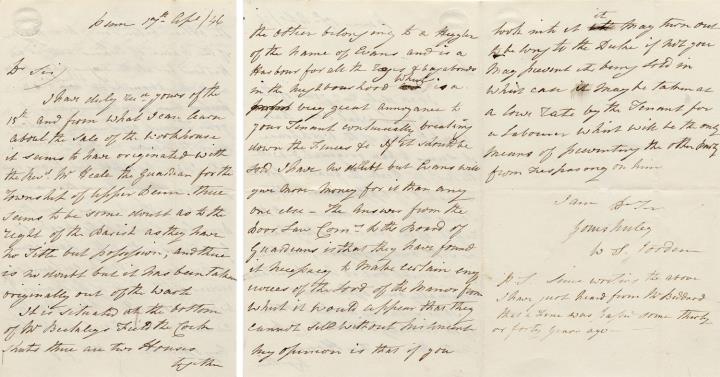 Penn 17th Apl /46
Dr Sir
I have duly recd yours of the
15th and from what I can learn
about the Sale of the Workhouse
it seems to have originated with
the Revd Mr Peale the Guardian for the
Township of Upper Penn. there
seems to be some doubt as to the
right of the Parish as they have
no Title but possession, and there
is no doubt but it has been taken
originally out of the waste
It is situated at the bottom
of Mr Field the Cock
there are two Houses
together
the other belonging to a
of the name of Evans and is a
Harbour for all the Rogues & vagabonds
in the Neighbourhood which is a
very great annoyance to
your Tenant continually breaking
down the Fences &c If it should be
Sold I have no doubt but Evans will
give more money for it than any
one else – The answer from the
Poor Law Comrs to the Board of
Guardians is that they have found
it necessary to make certain enq
uiries of the Lord of the Manor from
which it would appear that they
cannot sell without his consent
My opinion is that if you
look into it it may turn out
to belong to the Duke if not you
may prevent it being Sold in
which case it may be taken at
a low rate by the Tenant for
a labourer which will be the only
means of preventing the other party
from trespassing on him
I am Dr Sir
Yours truly
W S
P.S. Since writing the above
I have just heard from Mr
that a Fine was some thirty
or forty years ago –